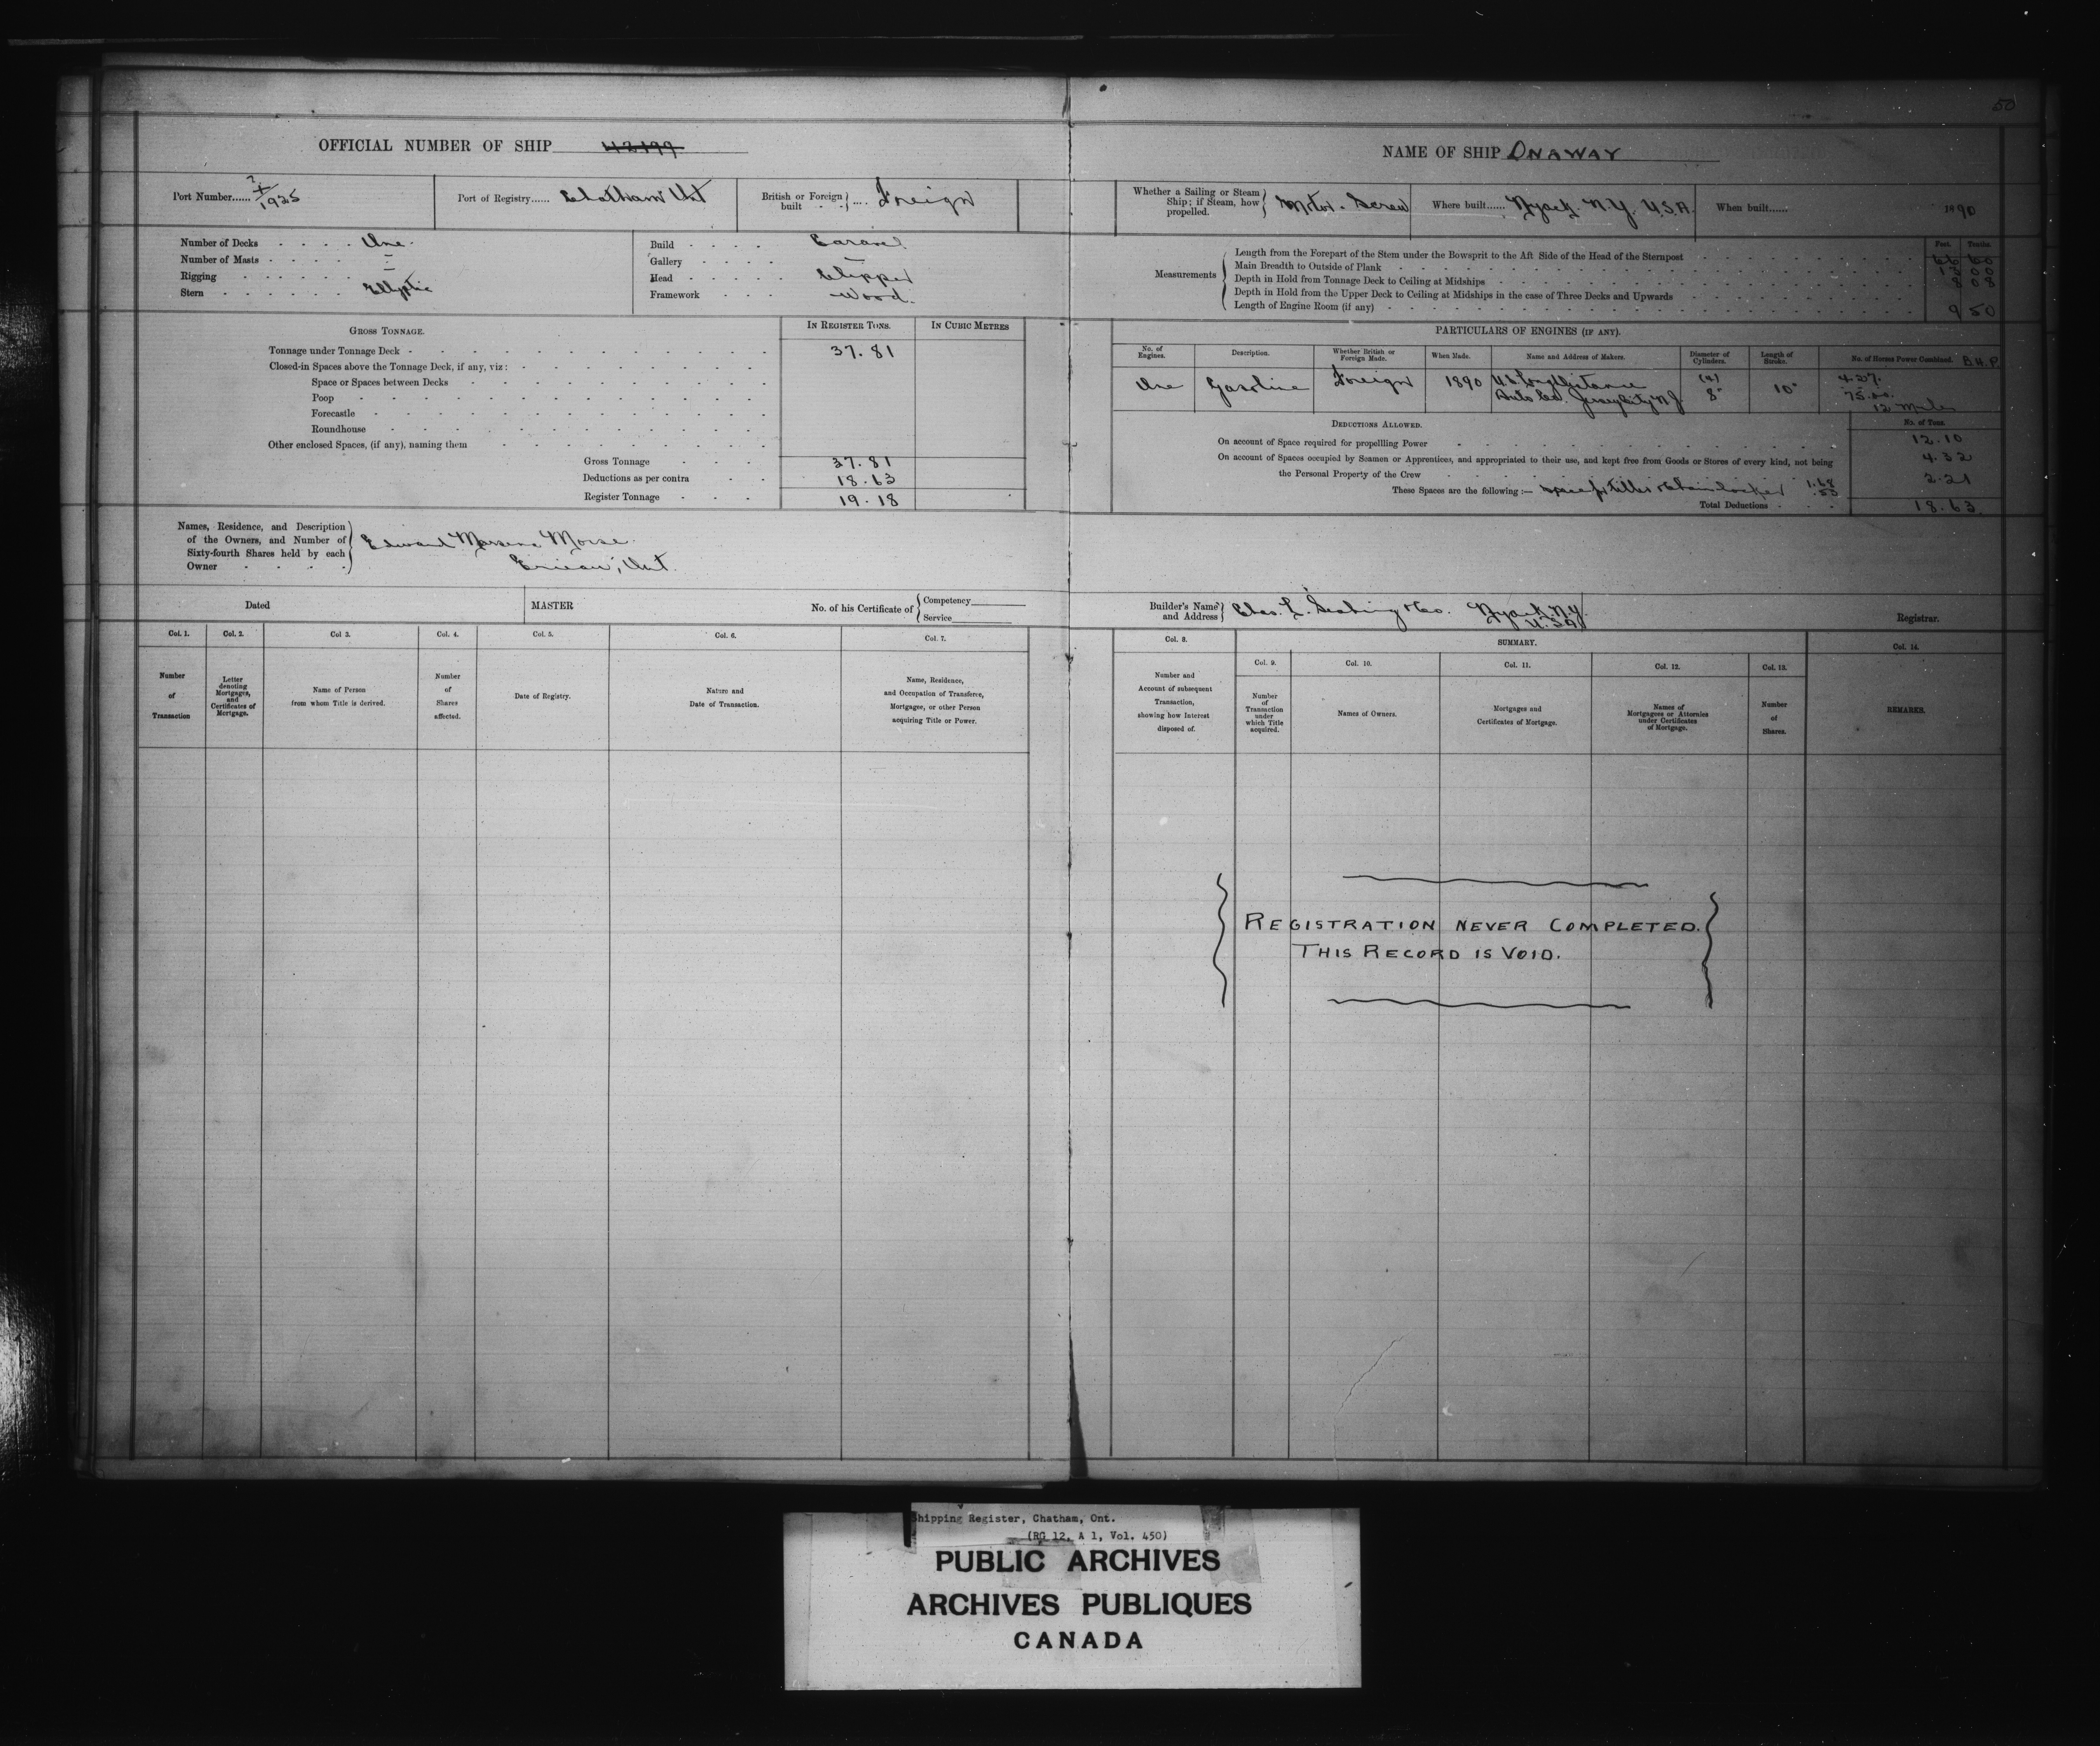 50
OFFICIAL NUMBER OF SHIP 42199
Port Number...... 1925
Port of Registry...... Chatham Ont
British or Foreign built .... Foreign
Number of Decks - - - - One
Number of Masts - - - - -
Rigging - - - - - - -
Stern - - - - - - Elliptic
Build - - - - Carvel
Gallery - - - - -
Head - - - - - Clipper
Framework - - - Wood.
GROSS TONNAGE.
IN REGISTER TONS.
IN CUBIC METRES
Tonnage under Tonnage Deck - 37.81
Closed-in Spaces above the Tonnage Deck, if any, viz:
Space or Spaces between Decks
Poop
Forecastle
Roundhouse
Other enclosed Spaces, (if any), naming them
Gross Tonnage 37.81
Deductions as per contra 18.63
Register Tonnage 19.18
Names, Residence, and Description
of the Owners, and Number of
Sixty-fourth Shares held by each
Owner
Edward Morse.
Erieau, Ont.
Dated
MASTER
No. of his Certificate of
Competency
Service
Col. 1.
Col. 2.
Col 3.
Col. 4.
Col. 5.
Col. 6.
Col. 7.
Number
of
Transaction
Letter
denoting
Mortgages,
and
Certificates of
Mortgage.
Name of Person
from whom Title is derived.
Number
of
Shares
affected.
Date of Registry.
Nature and
Date of Transaction.
Name, Residence,
and Occupation of Transferee,
Mortgagee, or other Person
acquiring Title or Power.
NAME OF SHIP ONAWAY
Whether a Sailing or Steam
Ship; if Steam, how
propelled.
Motor - Screw
Where built...... Nyack. N.Y. U.S.A.
When built...... 1890
Measurements
Feet. Tenths.
Length from the Forepart of the Stem under the Bowsprit to the Aft Side of the Head of the Sternpost 66 60
Main Breadth to Outside of Plank 13 00
Depth in Hold from Tonnage Deck to Ceiling at Midships 8 08
Depth in Hold from the Upper Deck to Ceiling at Midships in the case of Three Decks and Upwards
Length of Engine Room (if any) 9 50
PARTICULARS OF ENGINES (IF ANY).
No. of
Engines.
Description.
Whether British or
Foreign Made.
When Made.
Name and Address of Makers.
Diameter of
Cylinders.
Length of
Stroke.
No. of Horses Power Combined. B.H.P.
One
Gasoline
Foreign
1890
U.S. Long Distance
Auto Co. Jersey City N.J.
(4)
8"
10"
4.27.
75.00.
12 miles
DEDUCTIONS ALLOWED.
No. of Tons.
On account of Space required for propelling Power 12.10
On account of Spaces occupied by Seamen or Apprentices, and appropriated to their use, and kept free from Goods or Stores of every kind, not being 4.32
the Personal Property of the Crew
These Spaces are the following:— space for tiller & chain locker 1.68 .53 2.21
Total Deductions 18.63
Builder's Name
and Address
Chas. L. & Co. Nyack N.Y.
U.S.A.
Registrar.
Col. 8.
SUMMARY.
Col. 14.
Col. 9.
Col. 10.
Col. 11.
Col. 12.
Col. 13.
Number and
Account of subsequent
Transaction,
showing how Interest
disposed of.
Number
of
Transaction
under
which Title
acquired.
Names of Owners.
Mortgages and
Certificates of Mortgage.
Names of
Mortgagees or Attornies
under Certificates
of Mortgage.
Number
of
Shares.
REMARKS.
REGISTRATION NEVER COMPLETED.
THIS RECORD IS VOID.
Shipping Register, Chatham, Ont.
(RG 12, A 1, Vol. 450)
PUBLIC ARCHIVES
ARCHIVES PUBLIQUES
CANADA